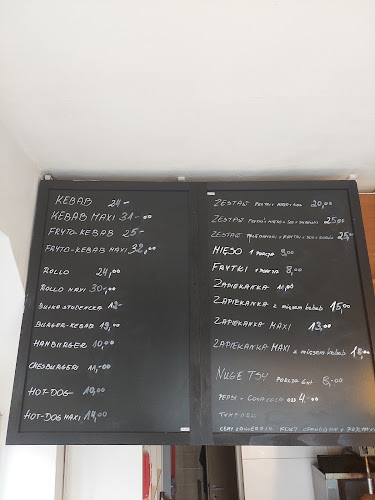 KEBAB 24-
KEBAB MAXI 31-00
FRYTO-KEBAB 25-
FRYTO-KEBAB MAXI 32,00
ROLLO 24,00
ROLLO MAXI 30-00
BUŁKA STUDENCKA 12-
BURGER-KEBAB 19,00
HAMBURGER 10,00
CHESBURGER 11,-00
HOT-DOG 10,00
HOT-DOG MAXI 14,00
ZESTAW FRYTKI + MIĘSO + SOS 20,00
ZESTAW FRYTKI + MIĘSO + SOS + SURÓWKI 25,00
ZESTAW + FRYTKI + SOS + 25,-
MIĘSO 1 PORCJA 9,00
FRYTKI 1 PORCJA 8,00
ZAPIEKANKA 11,00
ZAPIEKANKA z mięsem kebab 15,00
ZAPIEKANKA MAXI 13,00
ZAPIEKANKA MAXI z mięsem kebab 18,00
NUGETSY PORCJA 6szt 8,-00
PEPSI + COCA COLA OD 4,-00
TYMBARK